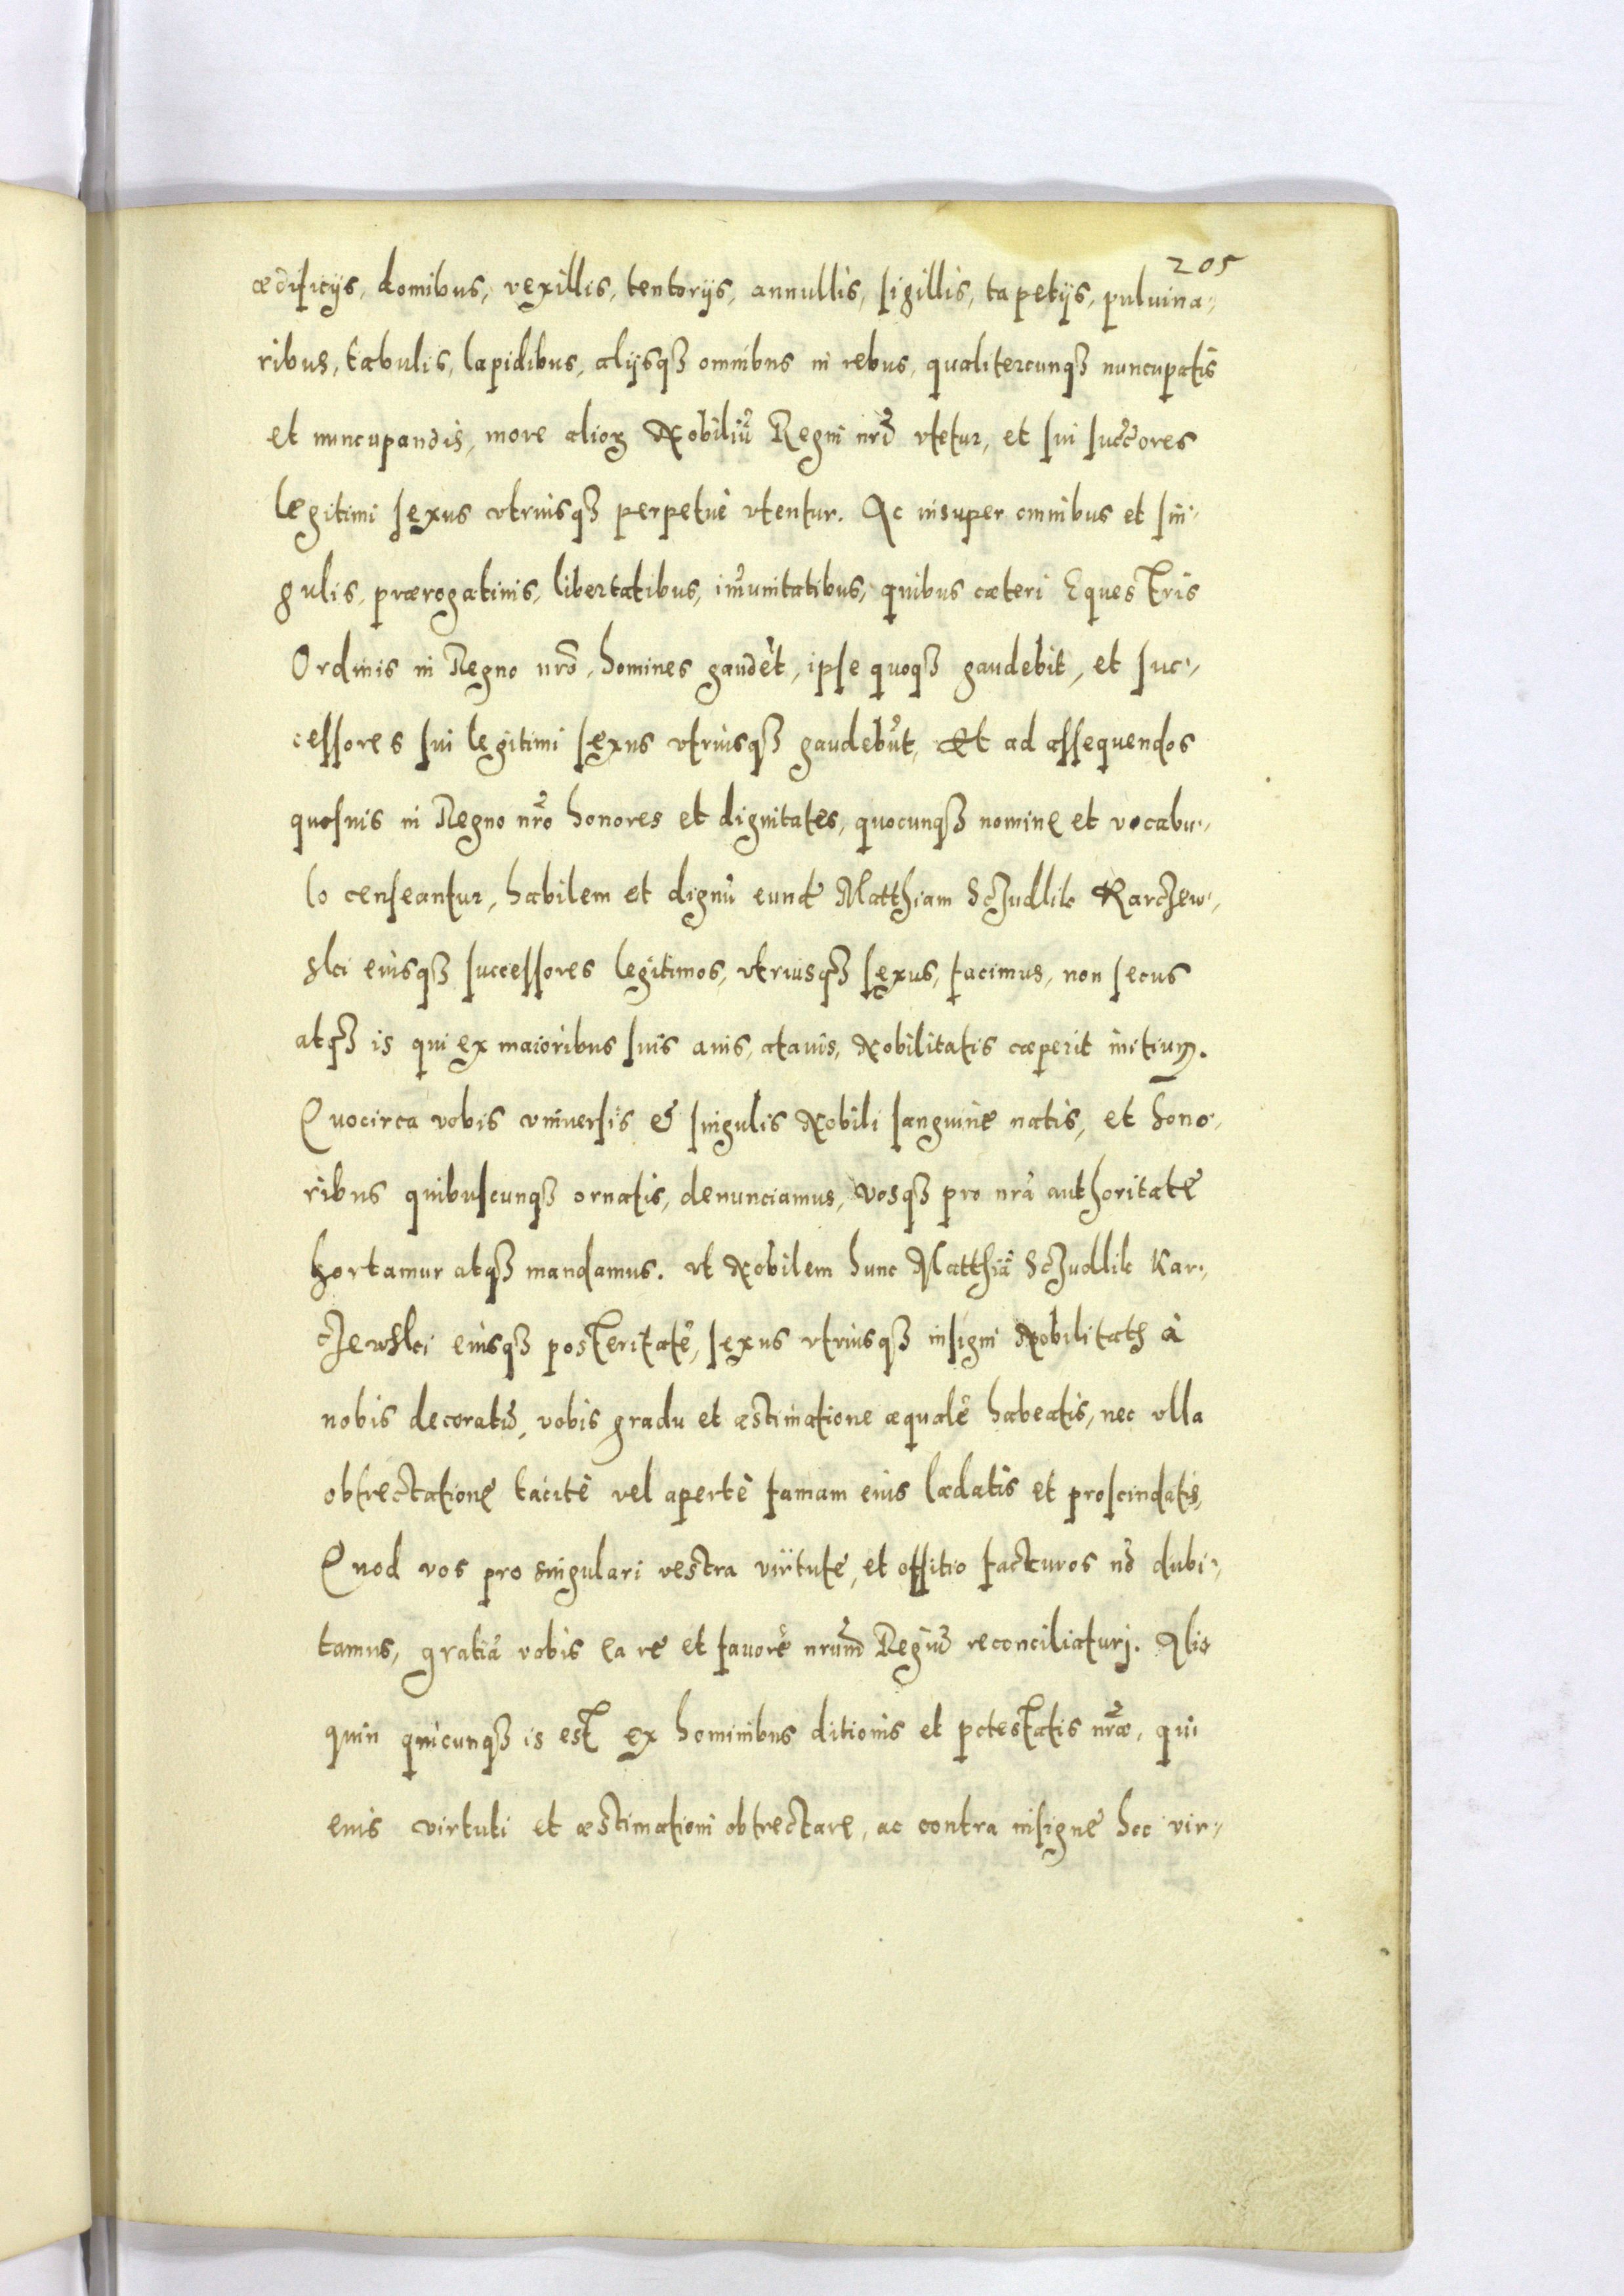 205
ædificijs, domibus, vexillis, tentorijs, annullis, sigillis, tapetijs, puluina-
ribus, tabulis, lapidibus, alijsqʒ omnibus in rebus, qualitercunqʒ nuncupatis
et nuncupandis, more alioꝝ Nobiliũ Regni nrĩ vtetur, et sui succ̃ores
legitimi sexus vtriusqʒ perpetuè vtentur. Ac insuper omnibus et sin-
gulis, prærogatiuis, libertatibus, im̃unitatibus, quibus cæteri Equestris
Ordinis in Regno nrõ, homines gaudẽt, ipse quoqʒ gaudebit, et suc-
cessores sui legitimi sexus vtriusqʒ gaudebũt, Et ad assequendos
quosuis in Regno nr̃o honores et dignitates, quocunqʒ nomine et vocabu-
lo censeantur, habilem et dignũ eundẽ Matthiam Sczudlik Karczew-
ski eiusqʒ successores legitimos, vtriusqʒ sexus, facimus, non secus
atqʒ is qui ex maioribus suis auis, atauis, Nobilitatis cæperit initium.
Quocirca vobis vniuersis & singulis Nobili sanguine natis, et hono-
ribus quibuscunqʒ ornatis, denunciamus, vosqʒ pro nrã authoritate
hortamur atqʒ mandamus. vt Nobilem hunc Matthiã Sczudlik Kar-
czewski eiusqʒ posteritatẽ, sexus vtriusqʒ insigni Nobilitatis à
nobis decoratũ, vobis gradu et æstimatione æqualẽ habeatis, nec vlla
obtrectatione tacitè vel apertè famam eius lædatis et proscindatis,
Quod vos pro singulari vestra virtute, et offitio facturos nõ dubi-
tamus, gratiã vobis ea re et fauorẽ nrũm Regiũ reconciliaturj. Alio
quin quicunqʒ is est ex hominibus ditionis et potestatis nr̃æ, qui
eius virtuti et æstimationi obtrectare, ac contra insigne hoc vir-